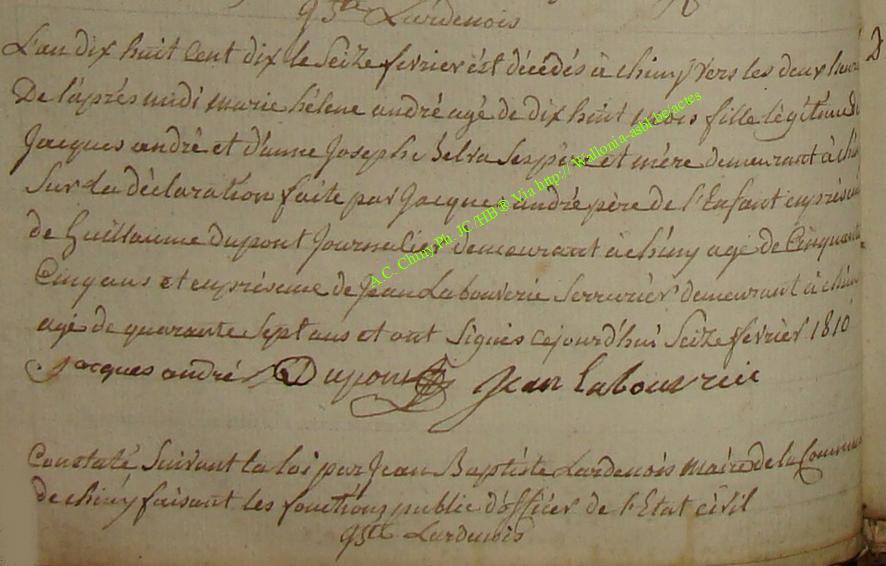 Lardenois
L'an dix huit cent dix le Seize fevrier est décédés à chiny vers les deux heure
De l'après midi marie hélene andré agé de dix huit mois fille légitime de
Jacques andré et d'anne Josephe Ses père et mère demeurant à chi
Sur la déclaration faite par Jacques andré père de l'Enfant en présen
de Guillaume Dupont Journalier demeurant à chiny agé de Cinquante
Cinq ans et en présence de Jean Labouverie Serrurier demeurant à chin
agé de quarante Sept ans et ont Signés cejourd'hui Seize fevrier 1810
Jacques andré Dupont Jean labouvrie
Constaté Suivant la loi par Jean Baptiste Lardenois maire de la Commun
de chiny faisant les fonctions public d'officier de l'Etat civil
Lardenois
A.C. Chiny Ph. JC /HB ® Via http:// Wallonia-asbl.be/actes